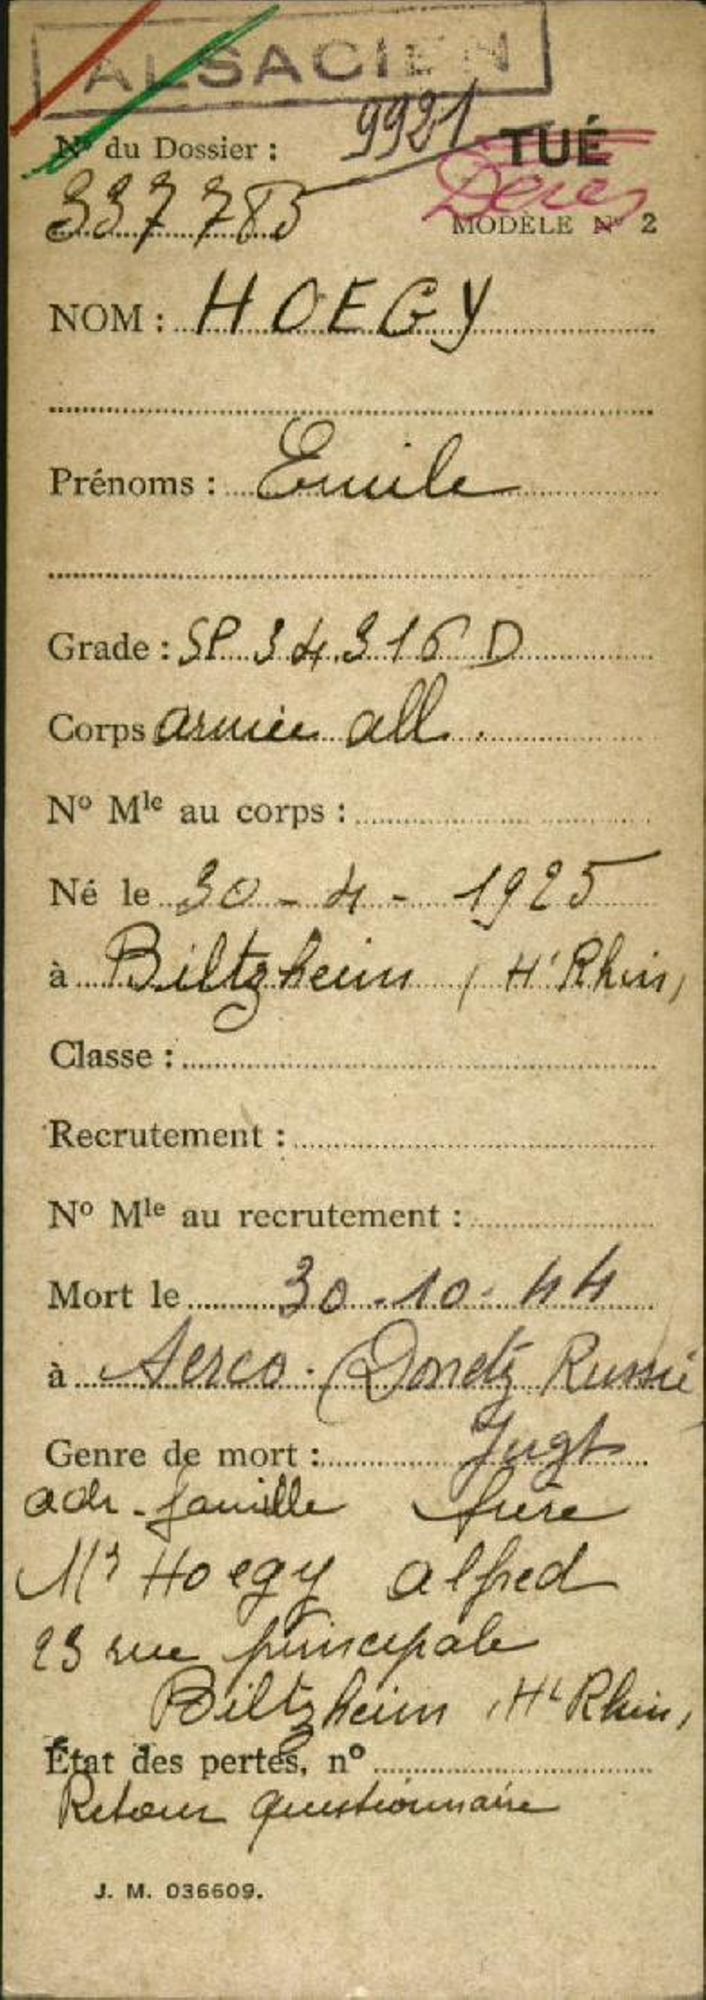 ALSACIEN
9921
N° du Dossier :
TUÉ
337 785
Décès
MODÈLE N° 2
NOM : HOEGY
Prénoms : Emile
Grade : SP 34 316 D
Corps armée all.
N° Mle au corps :
Né le 30 - 4 - 1925
à Biltzheim (Ht Rhin)
Classe :
Recrutement :
N° Mle au recrutement :
Mort le 30.10.44
à (Donetz Russie
Genre de mort :
adr. famille frère
Mr Hoegy alfred
23 rue principale
Biltzheim (Ht Rhin)
État des pertes, n°
Retour questionnaire
J. M. 036609.